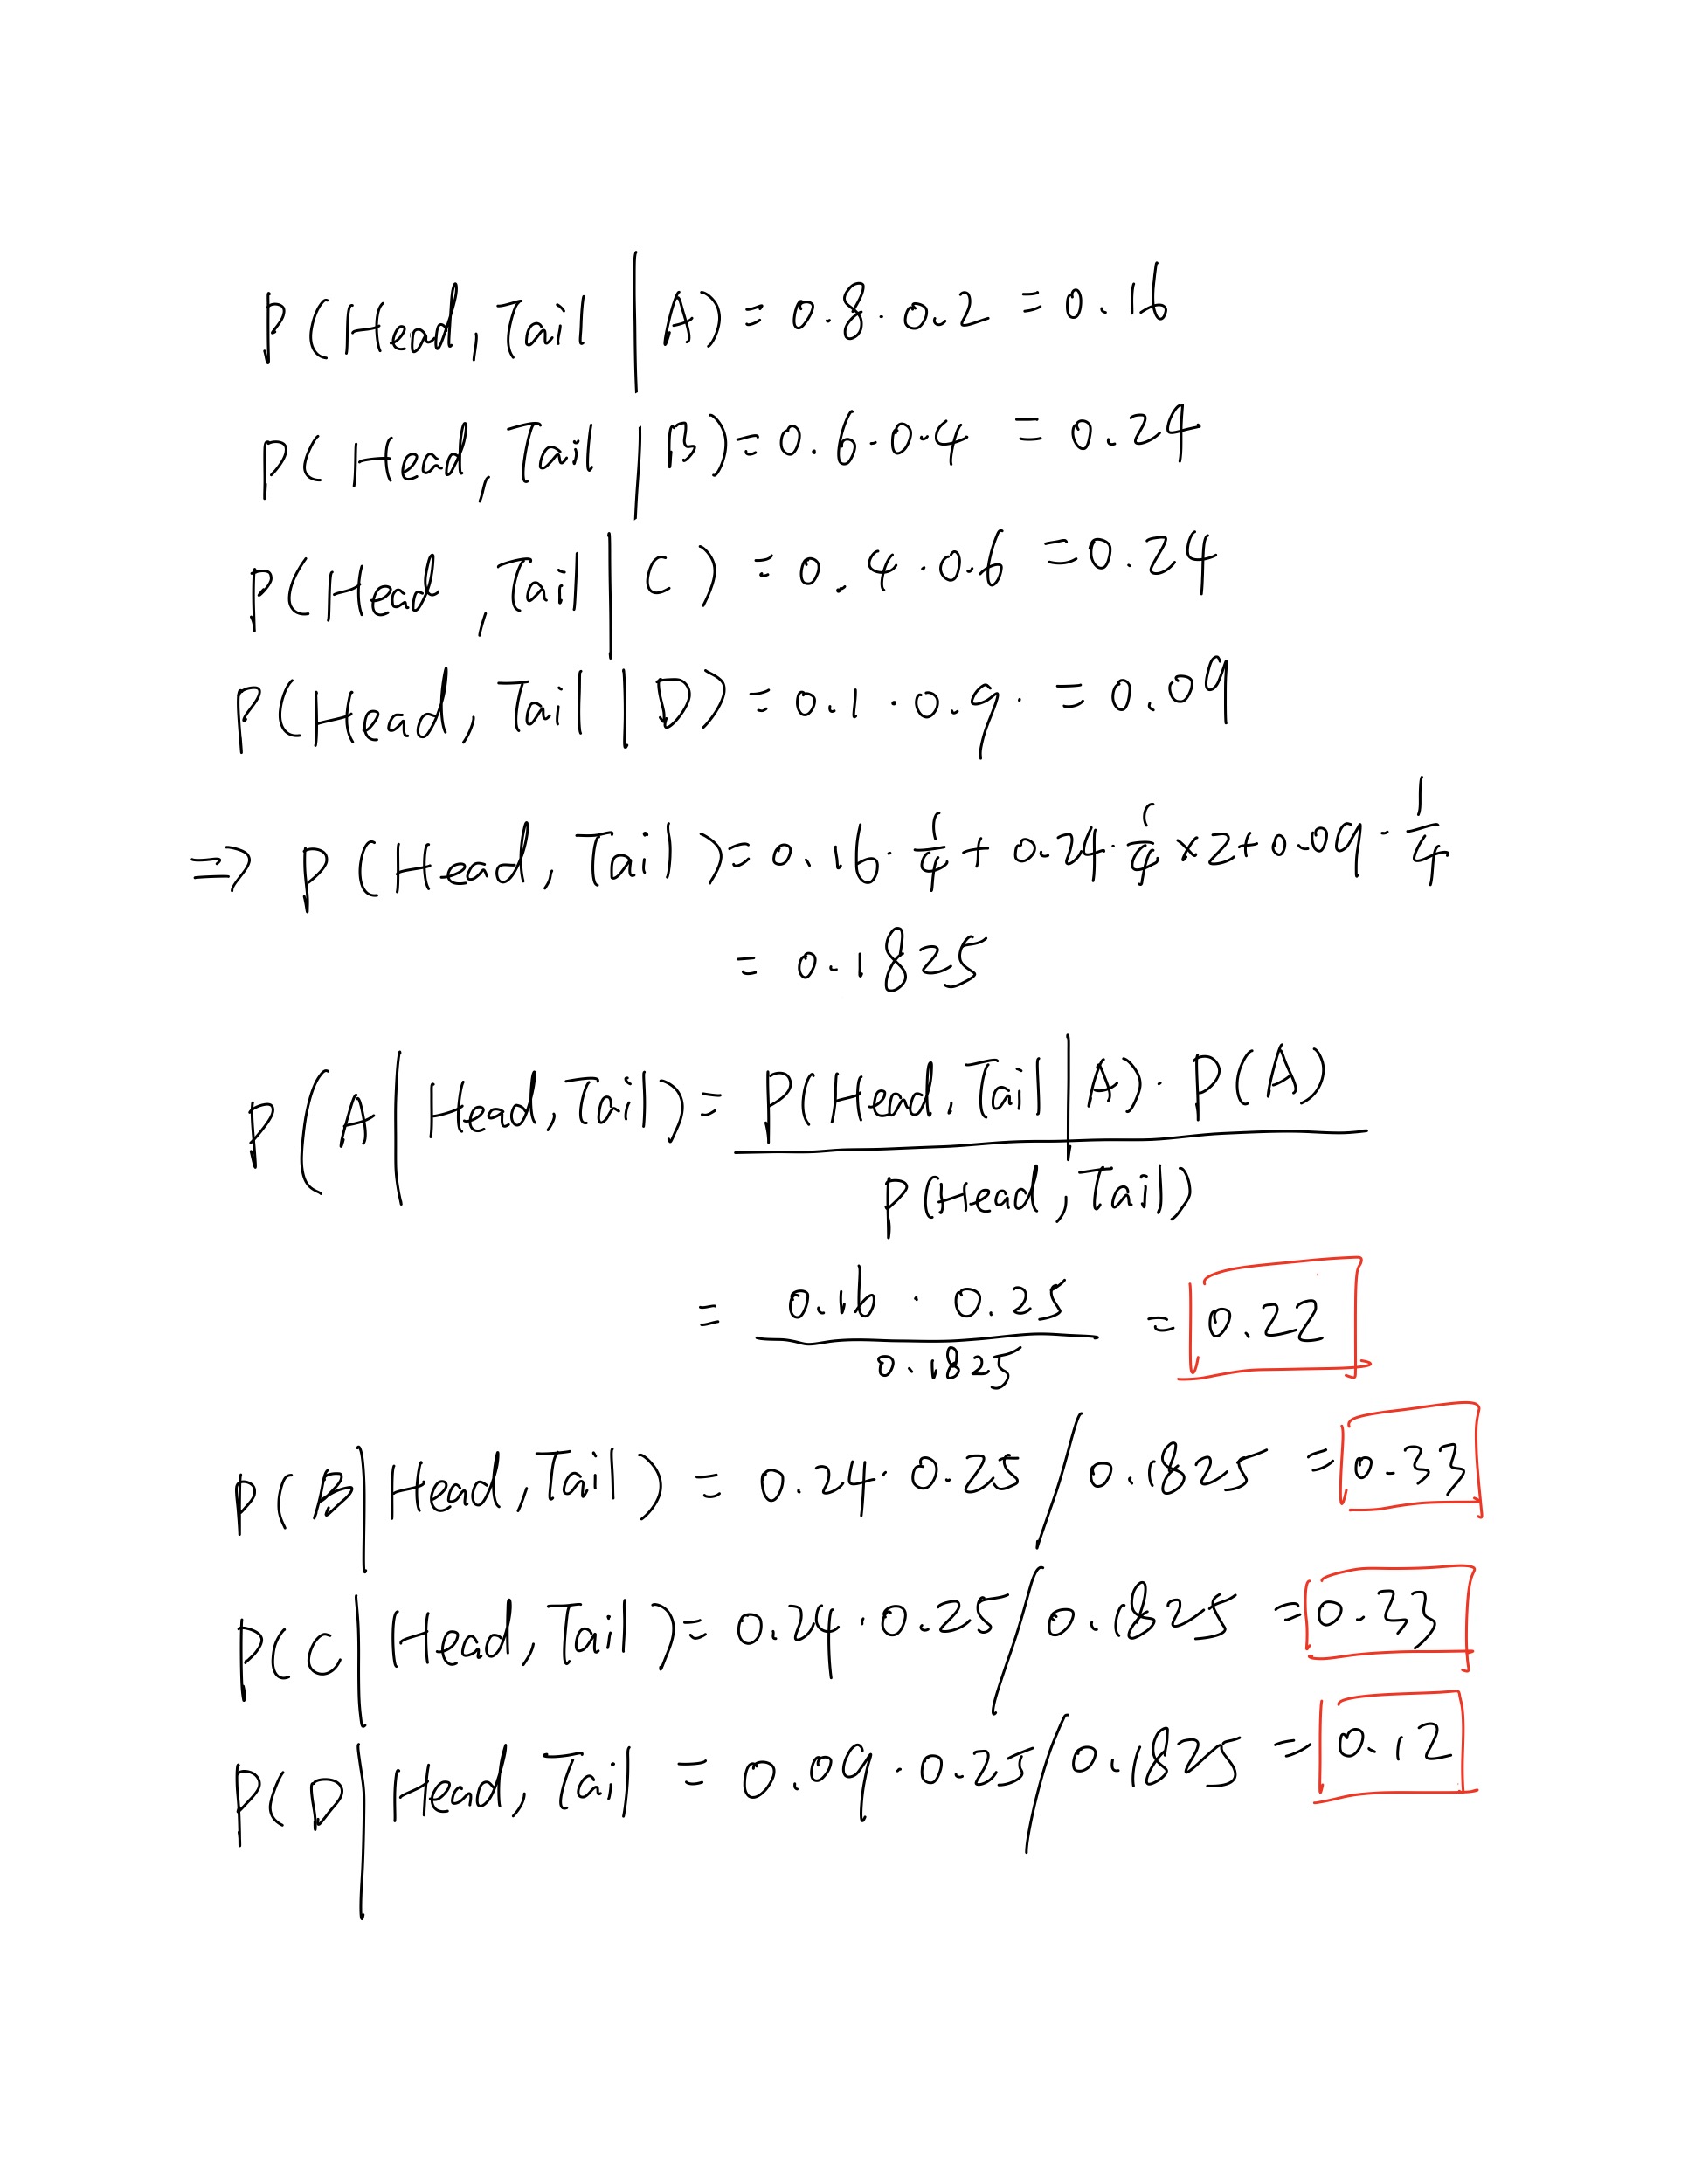 P(Head, Tail | A) = 0.8 · 0.2 = 0.16
P(Head, Tail | B) = 0.6 · 0.4 = 0.24
P(Head, Tail | C) = 0.4 · 0.6 = 0.24
P(Head, Tail | D) = 0.1 · 0.9 · = 0.09
⇒ P(Head, Tail) = 0.16 · 1/4 + 0.24 · 1/4 × 2 + 0.09 · 1/4
= 0.1825
P(A | Head, Tail) = P(Head, Tail | A) · P(A)
P(Head, Tail)
= 0.16 · 0.25 / 0.1825 = 0.22
P(B | Head, Tail) = 0.24 · 0.25 / 0.1825 = 0.33
P(C | Head, Tail) = 0.24 · 0.25 / 0.1825 = 0.33
P(D | Head, Tail = 0.09 · 0.25 / 0.1825 = 0.12